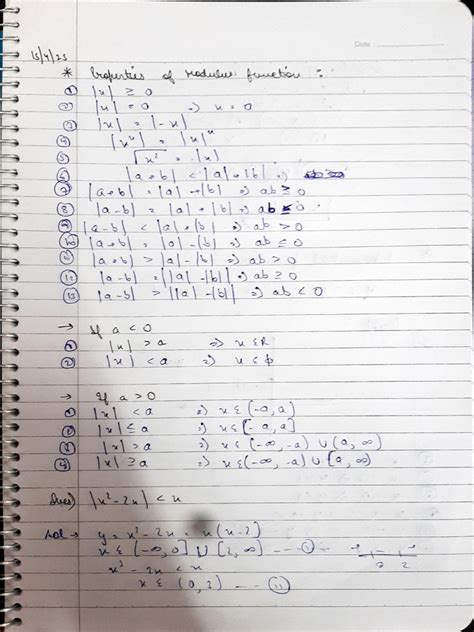 Date :
15/4/25
* Properties of Modulus function :
① |x| ≥ 0
② |x| = 0 ⇒ x = 0
③ |x| = |-x|
④ |xⁿ| = |x|ⁿ
⑤ √x² = |x|
⑥ |a+b| < |a|+|b| ⇒
⑦ |a+b| = |a|+|b| ⇒ ab ≥ 0
⑧ |a-b| = |a|+|b| ⇒ ab ≤ 0
⑨ |a-b| < |a|+|b| ⇒ ab > 0
⑩ |a+b| = |a|-|b| ⇒ ab ≤ 0
⑪ |a+b| > |a|-|b| ⇒ ab > 0
⑫ |a-b| = ||a|-|b|| ⇒ ab ≥ 0
⑬ |a-b| > ||a|-|b|| ⇒ ab < 0
→ If a < 0
① |x| > a ⇒ x ∈ R
② |x| < a ⇒ x ∈ ϕ
→ If a > 0
① |x| < a ⇒ x ∈ (-a, a)
② |x| ≤ a ⇒ x ∈ [-a, a]
③ |x| > a ⇒ x ∈ (-∞, -a) ∪ (a, ∞)
④ |x| ≥ a ⇒ x ∈ (-∞, -a) ∪ [a, ∞)
Ques) |x²-2x| < x
Sol → y = x²-2x = x(x-2)
x ∈ (-∞, 0] ∪ [2, ∞) --- ①
x² - 2x < x
x ∈ (0, 3) --- ⑪